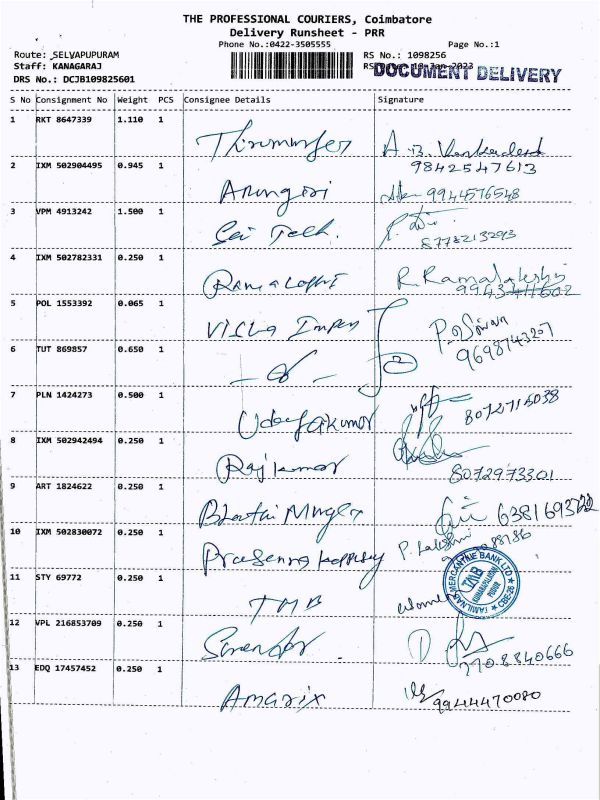 THE PROFESSIONAL COURIERS, Coimbatore
Delivery Runsheet - PRR
Phone No.:0422-3505555 Page No.:1
Route: SELVAPUPURAM RS No.: 1098256
Staff: KANAGARAJ
DOCUMENT DELIVERY
DRS No.: DCJB109825601
S No Consignment No Weight PCS Consignee Details Signature
1 RKT 8647339 1.110 1
A. B.
2 IXM 502904495 0.945 1 9842547613
9944576548
3 VPM 4913242 1.500 1
Sai Tech. 8778213293
4 IXM 502782331 0.250 1
R. Ramalakshmi
5 POL 1553392 0.065 1
6 TUT 869857 0.650 1 2 9698743207
7 PLN 1424273 0.500 1
Udayakumar
8 IXM 502942494 0.250 1
Rajkumar 8072973301
9 ART 1824622 0.250 1
10 IXM 502830072 0.250 1
Prasanna P. Lakshmi
11 STY 69772 0.250 1
TMB
TAMILNAD MERCANTILE BANK LTD
TMB
CBE-26
12 VPL 216853709 0.250 1
Surendar
13 EDQ 17457452 0.250 1
Amarix 9944470080